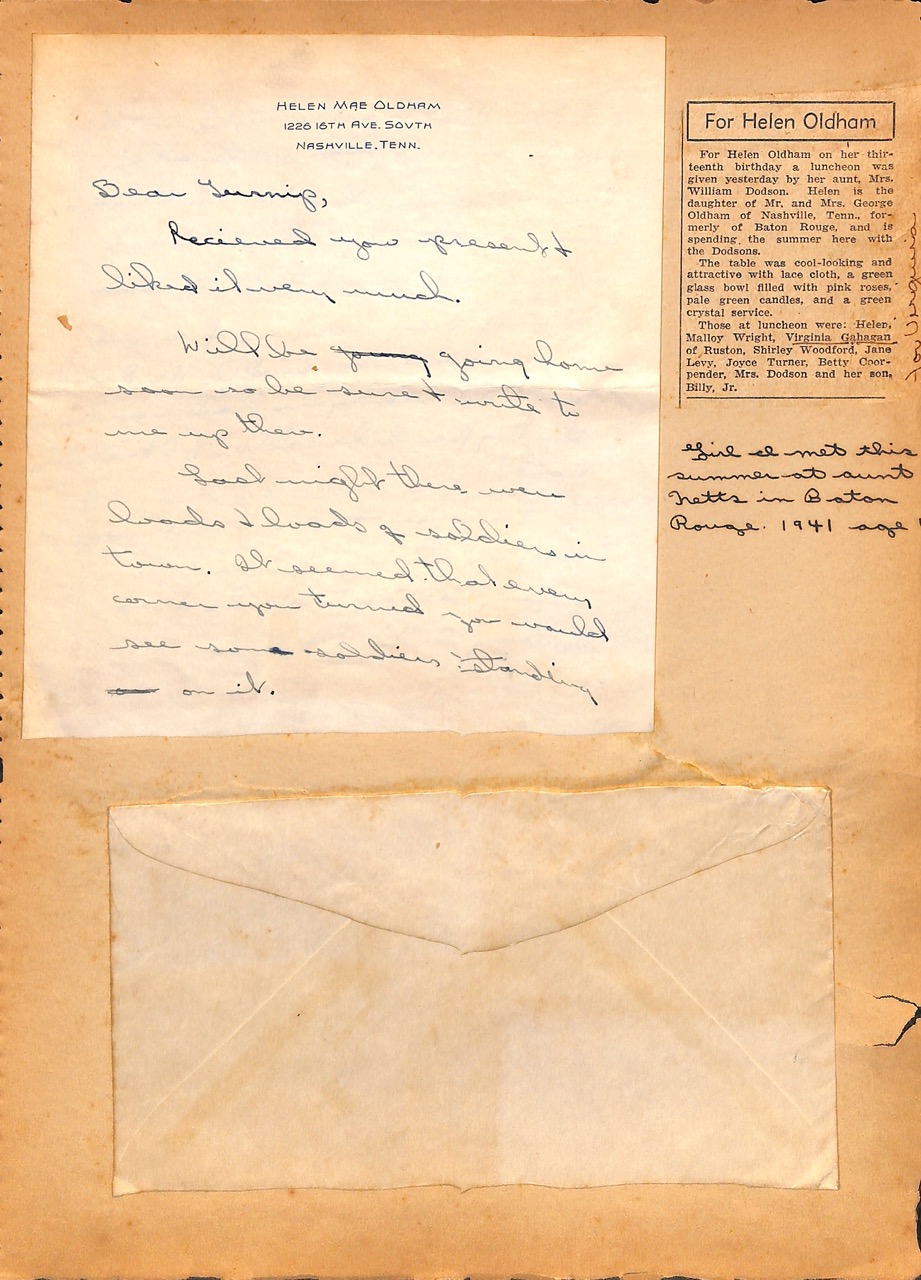 HELEN MAE OLDHAM
1226 16TH AVE. SOUTH
NASHVILLE, TENN.
Dear Turnip,
Recieved your present &
liked it very much.
Will be going going home
soon so be sure & write to
me up there.
Last night there were
loads & loads of soldiers in
town. It seemed that every
corner you turned you would
see some soldiers standing
on it.
For Helen Oldham
For Helen Oldham on her thir-
teenth birthday a luncheon was
given yesterday by her aunt, Mrs.
William Dodson. Helen is the
daughter of Mr. and Mrs. George
Oldham of Nashville, Tenn., for-
merly of Baton Rouge, and is
spending the summer here with
the Dodsons.
The table was cool-looking and
attractive with lace cloth, a green
glass bowl filled with pink roses,
pale green candles, and a green
crystal service.
Those at luncheon were: Helen,
Malloy Wright, Virginia Gahagan
of Ruston, Shirley Woodford, Jane
Levy, Joyce Turner, Betty Coor-
pender, Mrs. Dodson and her son,
Billy, Jr.
Girl I met this
summer at aunt
Netts in Baton
Rouge. 1941 age